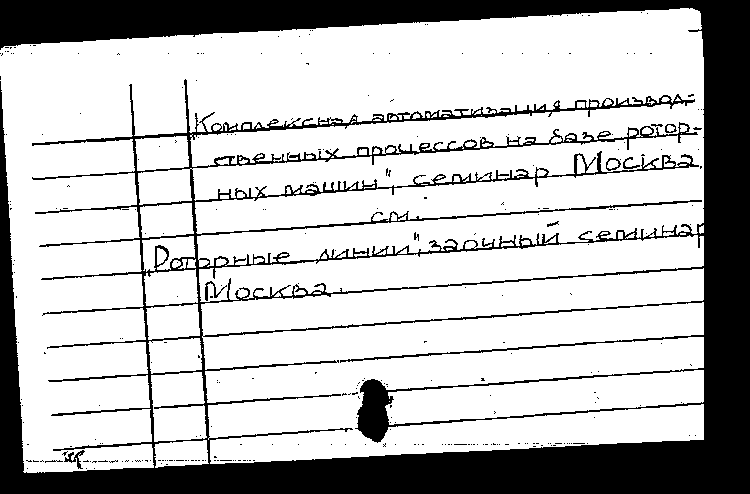 „Комплексная автоматизация производ-
ственных процессов на базе ротор-
ных машин", семинар Москва
см.
„Роторные линии", заочный семинар
Москва.